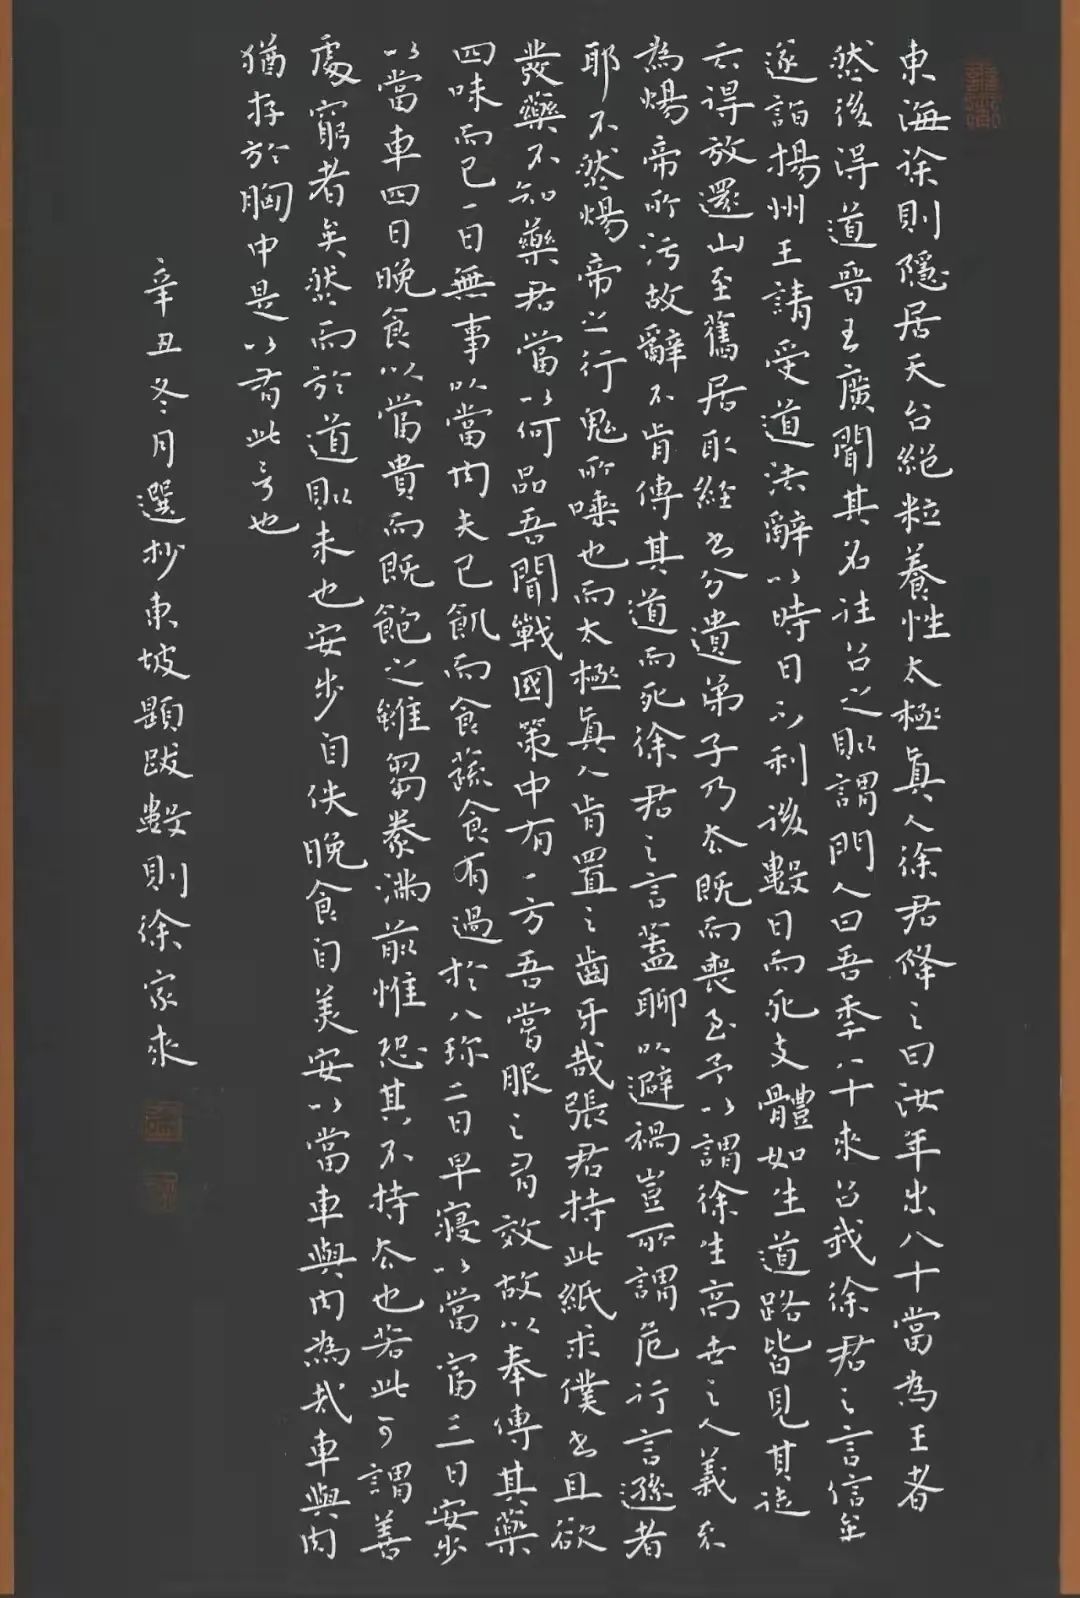 東海徐則隱居天台絕粒養性太極真人徐君降之曰汝年出八十當為王者
然後得道晉王廣聞其名往召之則謂門人曰吾季八十來召我徐君之言信至
遂詣揚州王請受道法辭以時日不利後數日而死支體如生道路皆見其徒
云得放還山至舊居取經書分遺弟子乃去既而喪至予以謂徐生高世之人義不
為煬帝所污故辭不肯傳其道而死徐君之言蓋聊以避禍豈所謂危行言遜者
耶不然煬帝之行鬼所唾也而太極真人肯置之齒牙哉張君持此紙求僕書且欲
發藥不知藥君當以何品吾聞戰國策中有一方吾嘗服之有效故以奉傳其藥
四味而已一曰無事以當貴二曰早寢以當富三曰安步
以當車四曰晚食以當肉夫已飢而食蔬食有過於八珍
而既飽之雖芻豢滿前惟恐其不持去也若此可謂善
處窮者矣然而於道則未也安步自佚晚食自美安以當車與肉為哉車與肉
猶存於胸中是以有此言也
辛丑冬月選抄東坡題跋數則徐家來